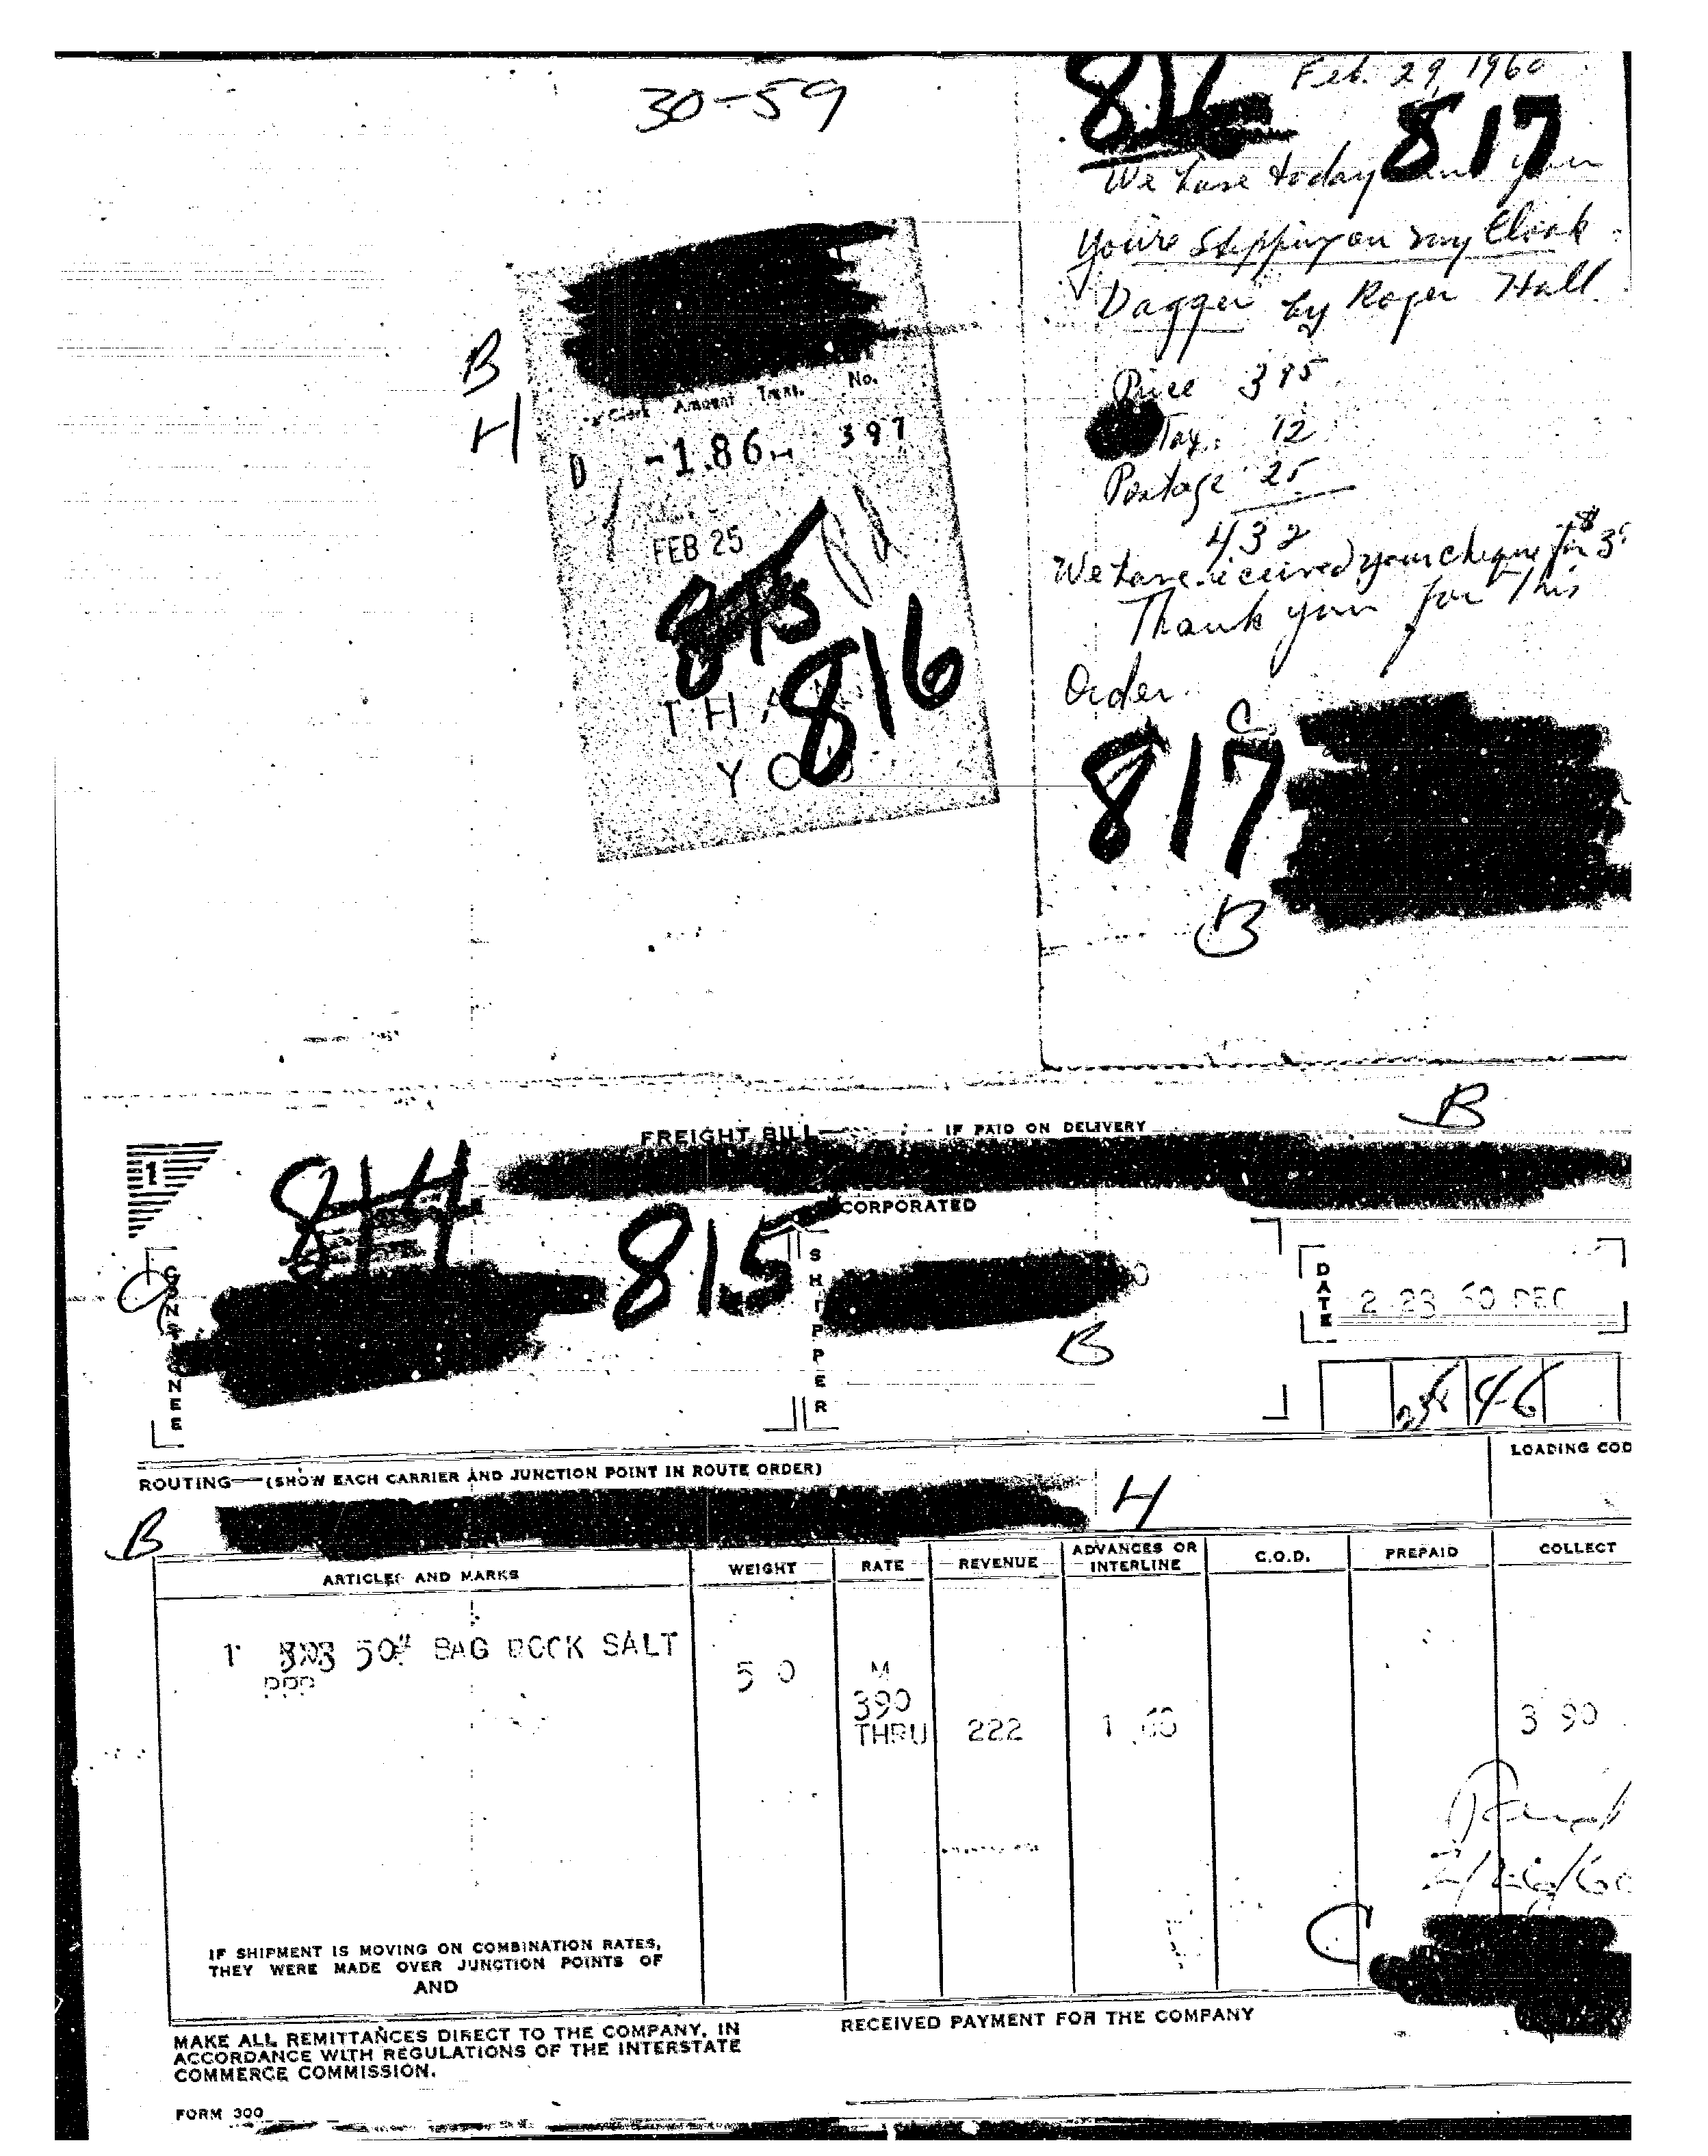 30-59
Feb. 29, 1960
817
We have today sent you
You're Stepping on my Cloak
Dagger by Roger Hall
Price 395
Tax 12
Postage 25
432
We have received your cheque for $3
Thank you for This
Order
C
817
B
B
H
Clerk Amount Trans. No.
D -1.86 397
FEB 25
815
816
THAN
YOU
B
FREIGHT BILL IF PAID ON DELIVERY
1
814
815
CORPORATED
C
CONSIGNEE
SHIPPER
B
DATE
2 23 60 DEC
46
LOADING COD
ROUTING—(SHOW EACH CARRIER AND JUNCTION POINT IN ROUTE ORDER)
H
B
ARTICLES AND MARKS WEIGHT RATE REVENUE ADVANCES OR INTERLINE C.O.D. PREPAID COLLECT
1 50# BAG ROCK SALT 50 M
PPD
390
THRU 222 1 68 3 90
Paid
2/26/60
C
IF SHIPMENT IS MOVING ON COMBINATION RATES,
THEY WERE MADE OVER JUNCTION POINTS OF
AND
MAKE ALL REMITTANCES DIRECT TO THE COMPANY, IN
ACCORDANCE WITH REGULATIONS OF THE INTERSTATE
COMMERCE COMMISSION.
RECEIVED PAYMENT FOR THE COMPANY
FORM 300